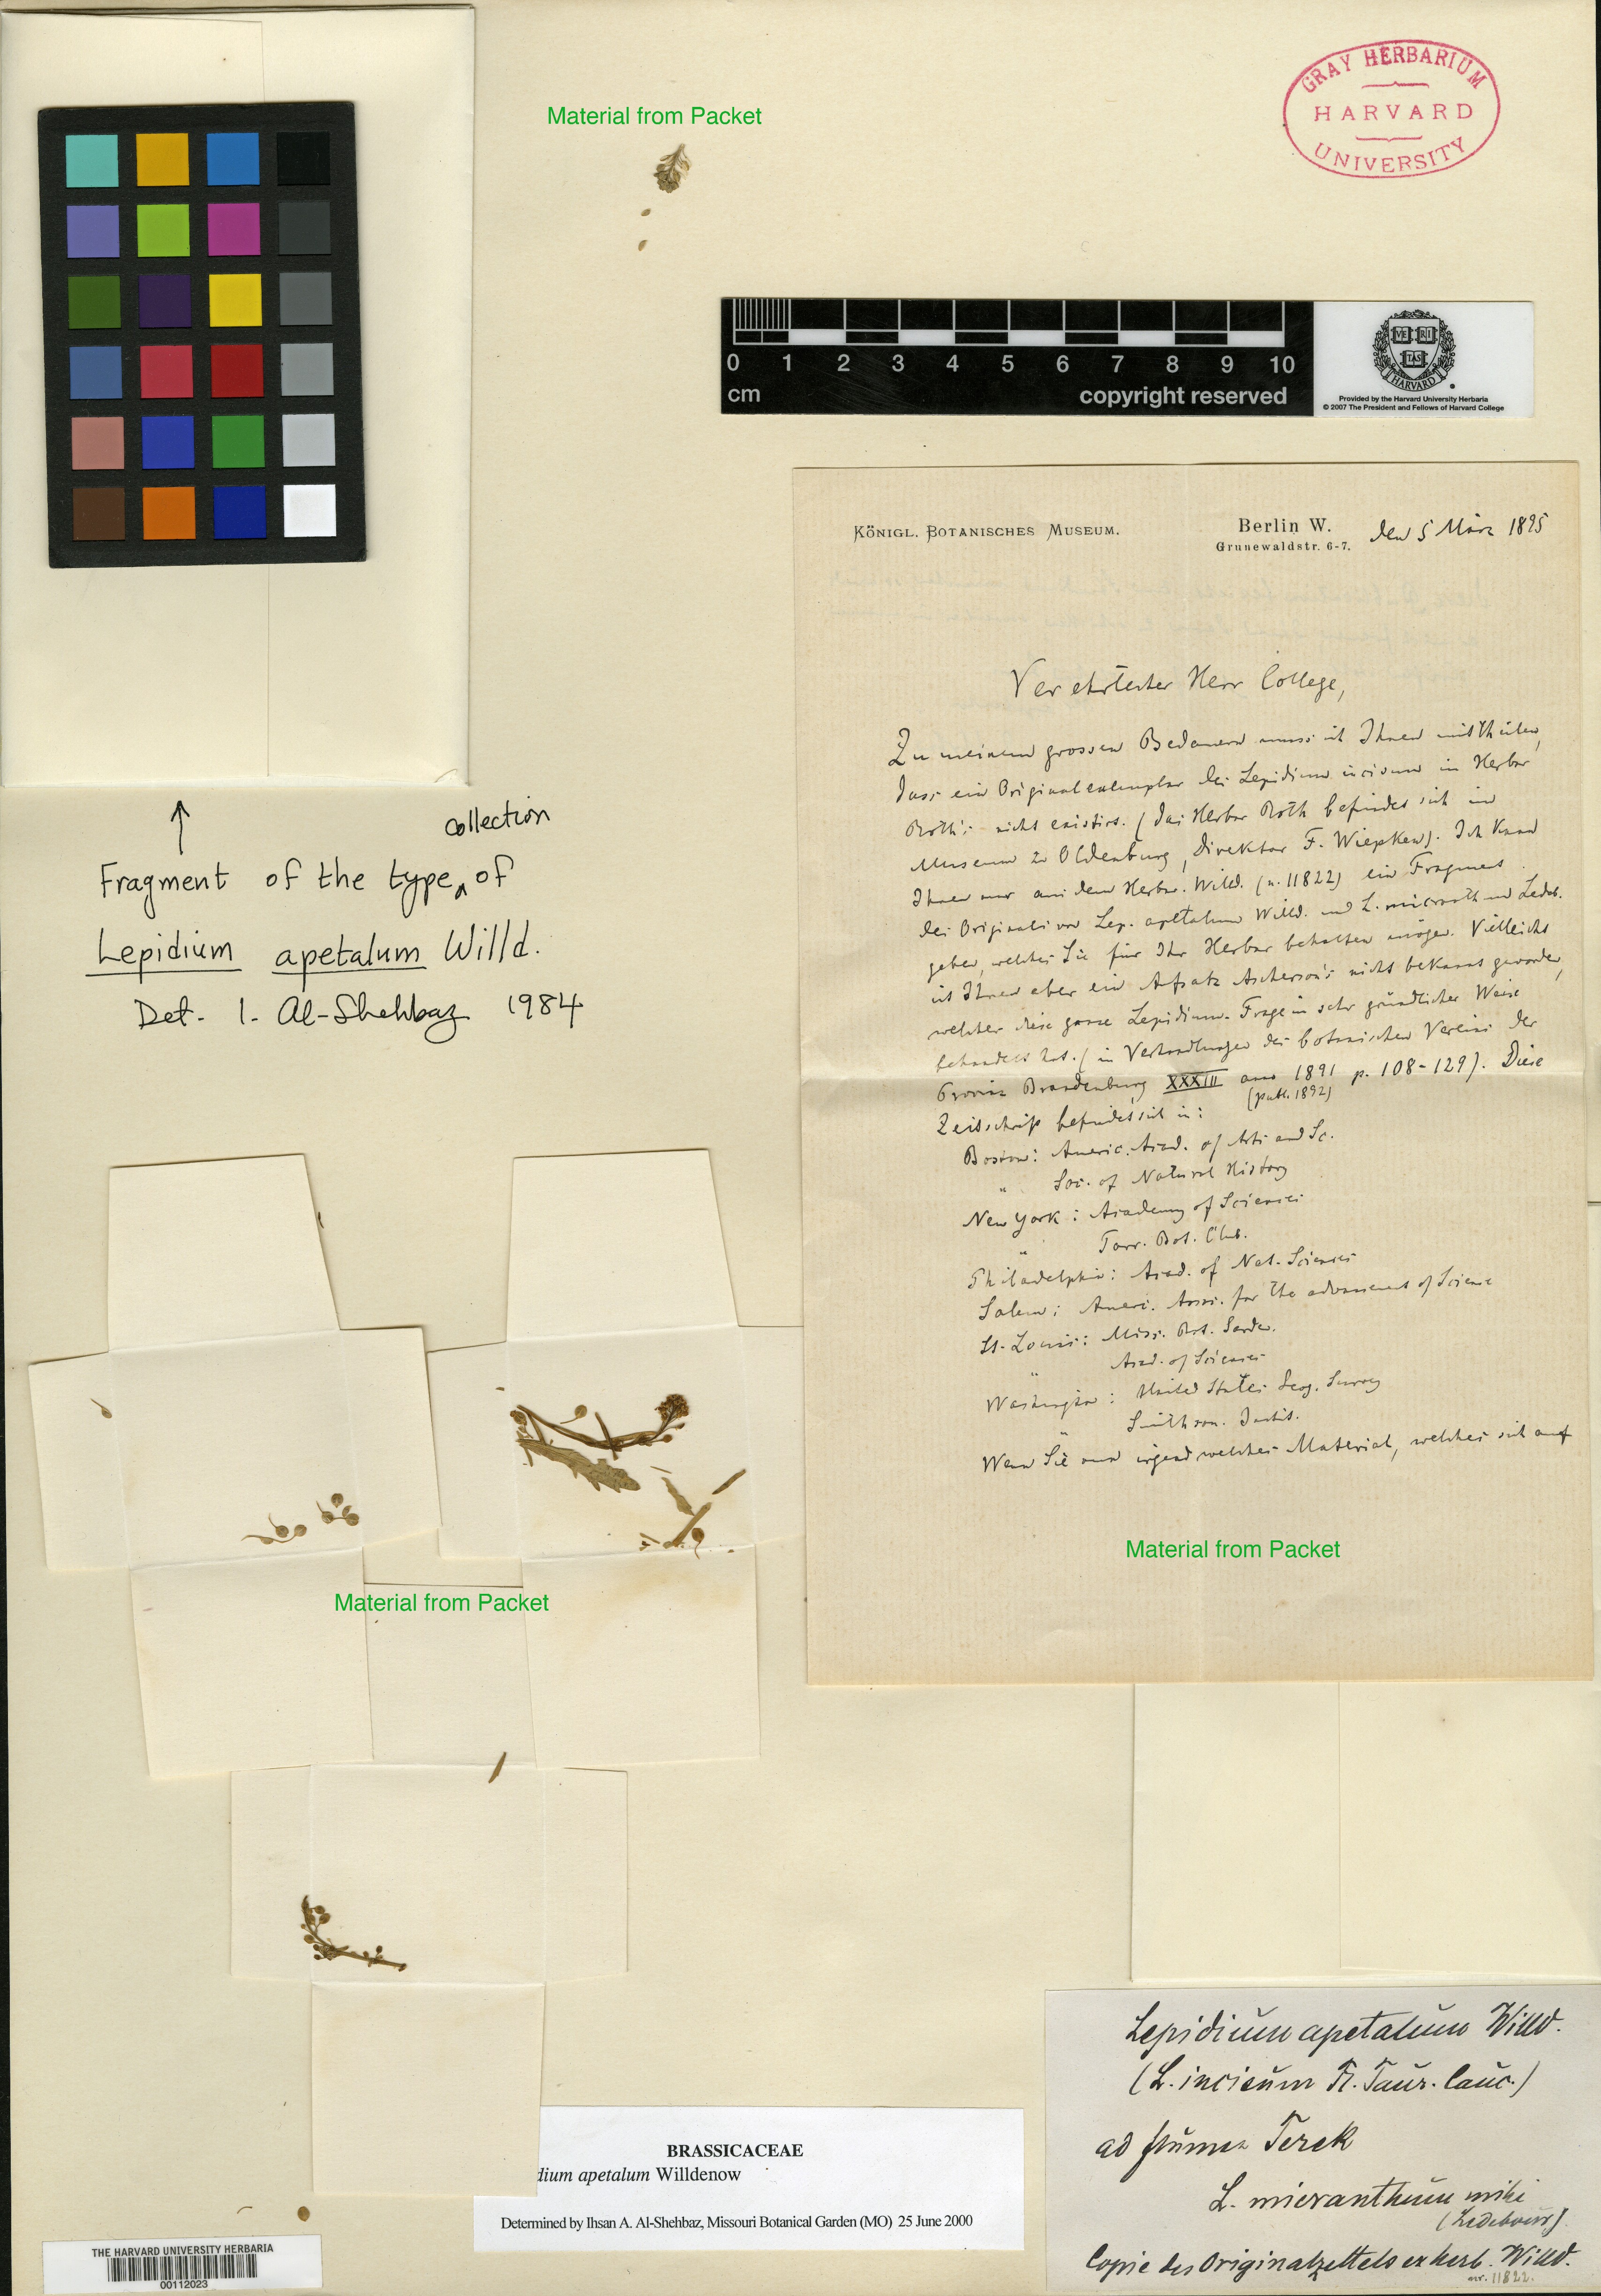 Material from Packet
GRAY HERBARIUM
HARVARD
UNIVERSITY
0 1 2 3 4 5 6 7 8 9 10
cm copyright reserved
VE RI
TAS
HARVARD
Provided by the Harvard University Herbaria
© 2007 The President and Fellows of Harvard College
KÖNIGL. BOTANISCHES MUSEUM.
Berlin W.
Grunewaldstr. 6-7.
den 5 März 1895
Verehrtester Herr College,
Zu meinem grossen Bedauern muss ich Ihnen mittheilen,
dass ein Originalexemplar des Lepidium incisum in Herbar
Roth's nicht existirt. (Das Herbar Roth befindet sich im
Museum zu Oldenburg, Direktor F. Wiepken). Ich kann
Ihnen nur aus dem Herbar. Willd. (n. 11822) ein Fragment
des Originals von Lep. apetalum Willd. und L. micranthum Ledeb.
geben, welches Sie für Ihr Herbar behalten mögen. Vielleicht
ist Ihnen aber ein Aufsatz Ascherson's nicht bekannt geworden,
welcher diese ganze Lepidium-Frage in sehr gründlicher Weise
behandelt hat. (in Verhandlungen des botanischen Vereins der
Provinz Brandenburg XXXIII anno 1891 p. 108-129). Diese
(publ. 1892)
Zeitschrift befindet sich in:
Boston: Americ. Acad. of Arts and Sc.
" Soc. of Natural History
New York: Academy of Sciences
" Torr. Bot. Club.
Philadelphia: Acad. of Nat. Sciences
Salem: Americ. Assoc. for the advancement of Science
St. Louis: Miss. Bot. Garden.
" Acad. of Sciences
Washington: United States Geog. Survey
" Smithson. Instit.
Wenn Sie nun irgend welches Material, welches sich auf
Material from Packet
collection
Fragment of the type ^ of
Lepidium apetalum Willd.
Det. I. Al-Shehbaz 1984
Material from Packet
Lepidium apetalum Willd.
(L. incisum Fl. Taur. Cauc.)
ad flumen Terek
L. micranthum mihi
(Ledebour)
Copie des Originalzettels ex herb. Willd.
nr. 11822.
BRASSICACEAE
dium apetalum Willdenow
Determined by Ihsan A. Al-Shehbaz, Missouri Botanical Garden (MO) 25 June 2000
THE HARVARD UNIVERSITY HERBARIA
00112023